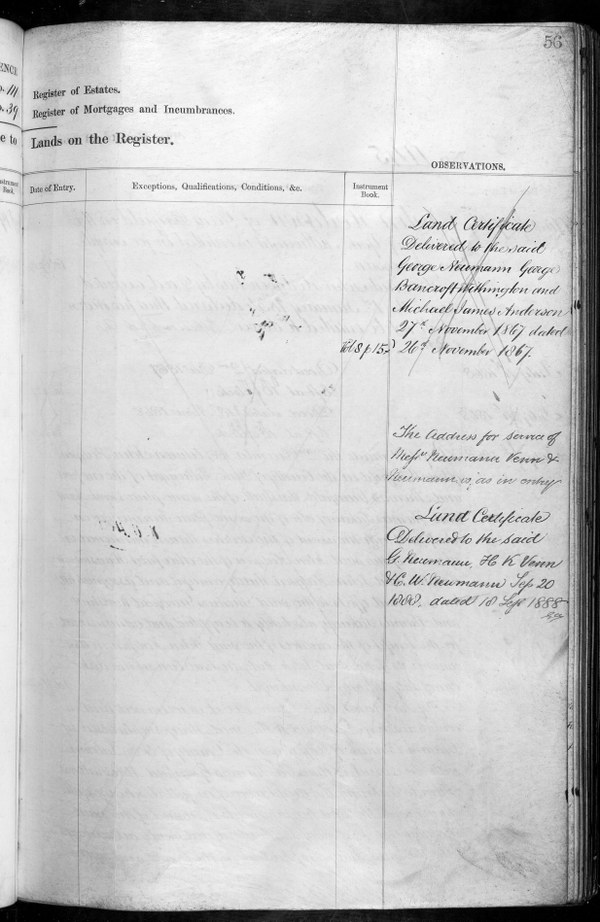 56
ENCE
Register of Estates.
Register of Mortgages and Incumbrances.
39
e to
Lands on the Register.
OBSERVATIONS.
Instrument
Book.
Date of Entry.
Exceptions, Qualifications, Conditions, &c.
Instrument
Book.
Land Certificate
Delivered to the said
George Neumann George
Bancroft Withington and
Michael James Anderson
27th November 1867 dated
Vol 8 p 15
26th November 1867.
The Address for service of
Messrs Neumann Venn &
Neumann is as in entry
Land Certificate
Delivered to the said
G. Neumann, H K Venn
& C. W. Neumann Sep 20
1888, dated 18 Sept 1888